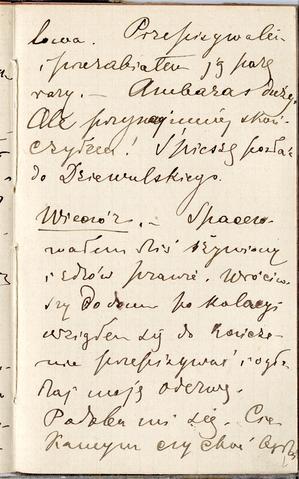 łowa. Przepisywałem
i przerabiałem ją parę
razy. — Ambaras duży.
Ale przynajmniej skoń-
czyłem! Śpieszę posłać
do Dziewulskiego.
Wieczór. — Spacero-
wałem dziś ożywiony
i zdrów prawie. Wróciw-
szy do domu po kolacyi
wziąłem się do
przepisywać i
moją odezwę.
Podoba mi się. Czy
czy choć